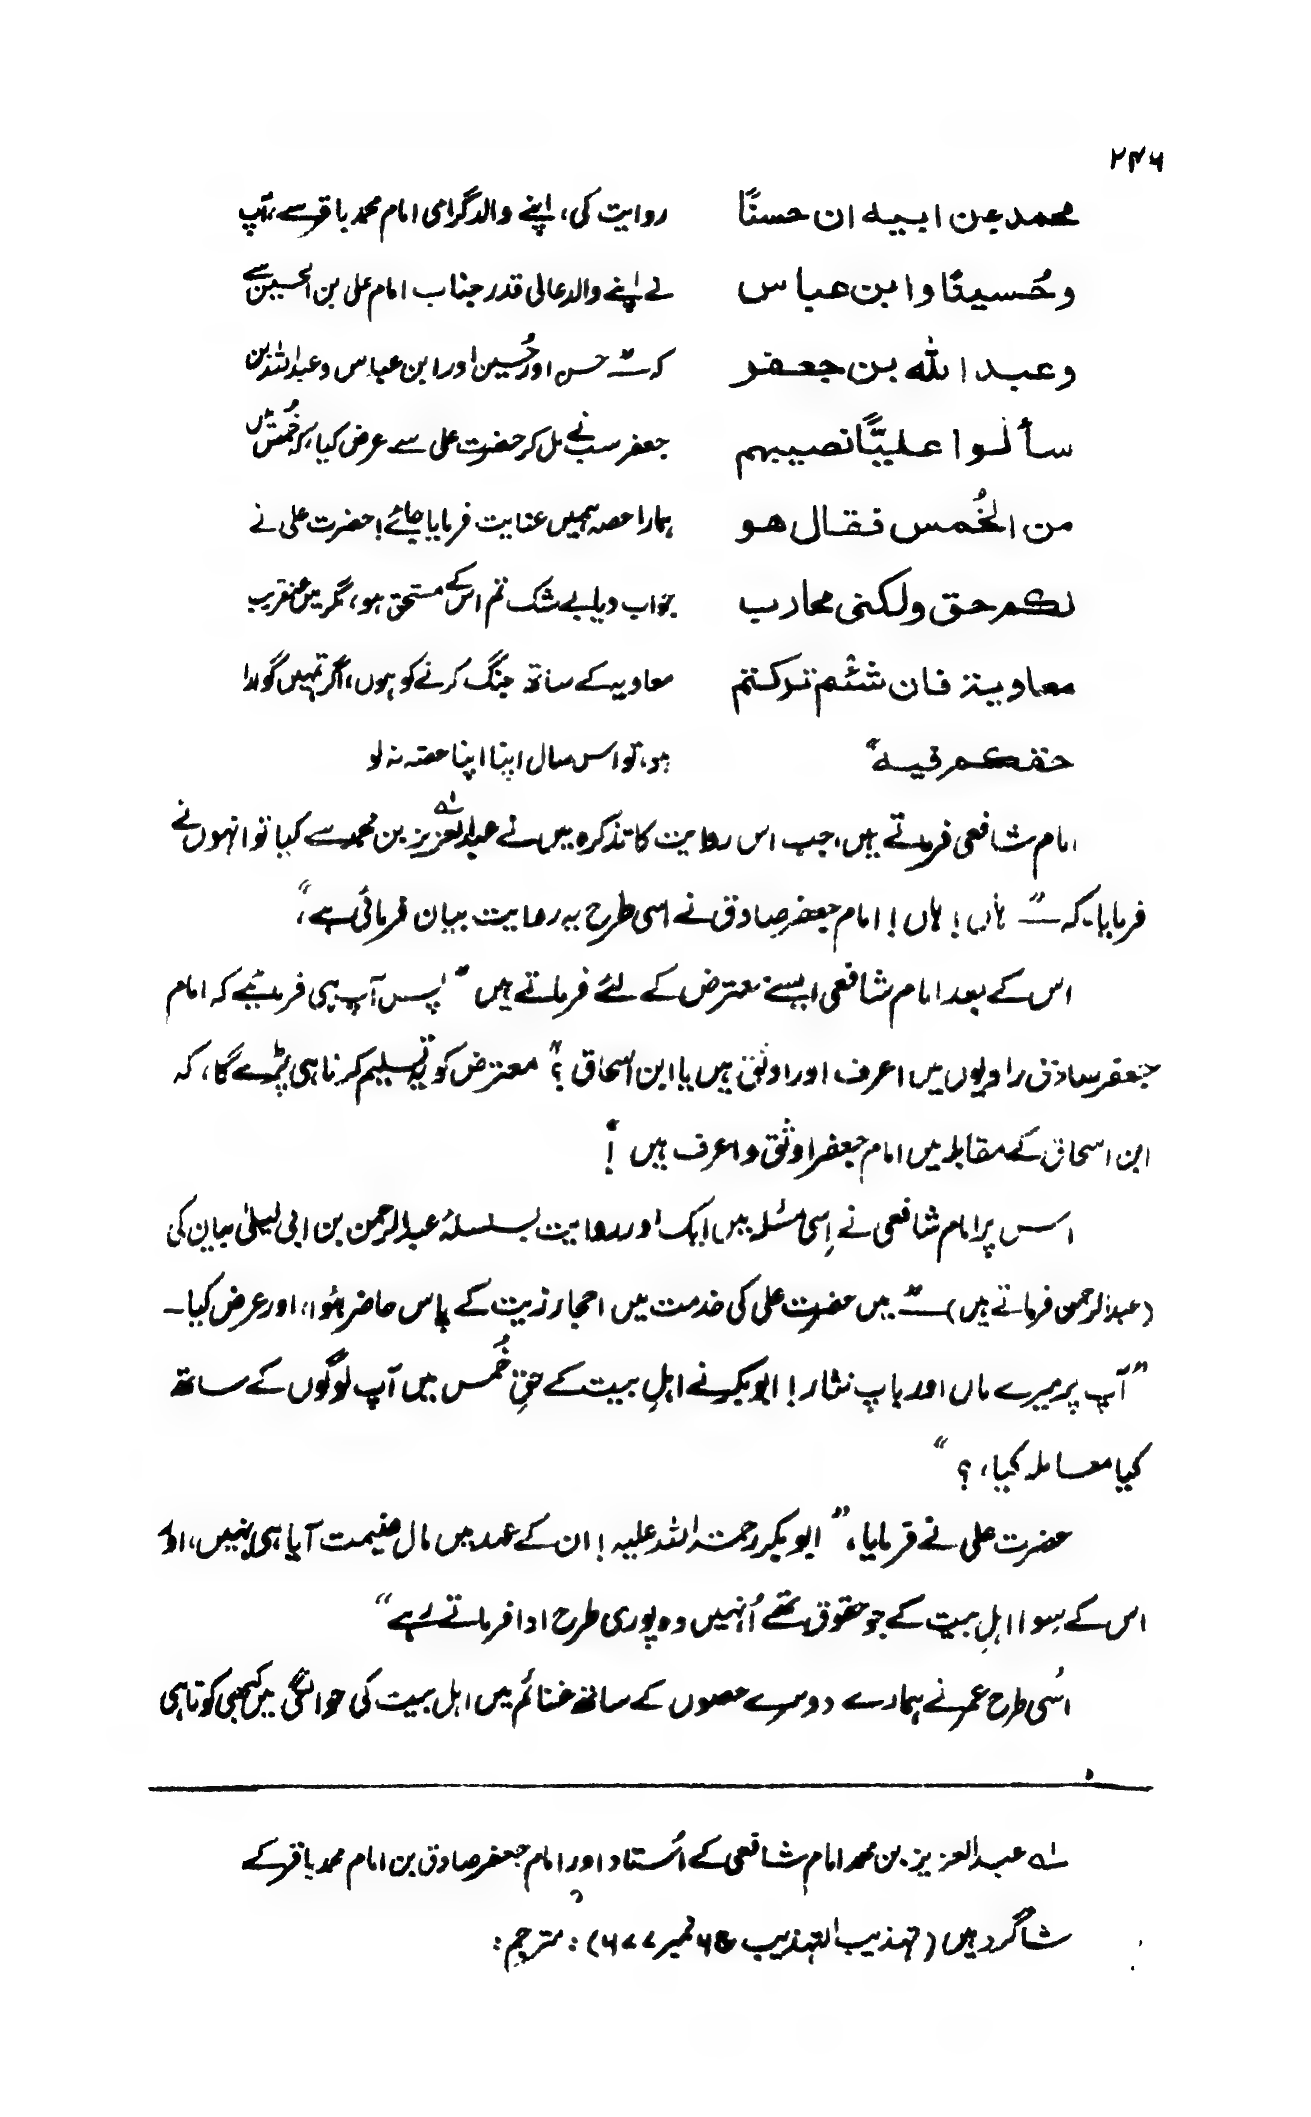 ۲۴۶
محمد عن ابیه ان حسنًا
وحُسینًا وابن عباس
وعبد الله بن جعفر
سألوا علیًّا نصیبهم
من الخُمس فقال هو
لکم حق ولکنی محارب
معاویة فان شئتم ترکتم
حقکم فیه"
روایت کی، اپنے والد گرامی امام محمد باقر سے، آپ
نے اپنے والد عالی قدر جناب امام علی بن الحسین سے
کہ — " حسن اور حُسین اور ابن عباس و عبداللہ بن
جعفر سب نے مل کر حضرت علی سے عرض کیا، کہ خُمس میں
ہمارا حصہ ہمیں عنایت فرمایا جائے! حضرت علی نے
جواب دیا بے شک تم اس کے مستحق ہو، مگر میں عنقریب
معاویہ کے ساتھ جنگ کرنے کو ہوں، اگر تمہیں گوارا
ہو، تو اس سال اپنا اپنا حصہ نہ لو
امام شافعی فرماتے ہیں، جب اس روایت کا تذکرہ میں نے عبدالعزیز بن محمد سے کیا تو انہوں نے
فرمایا۔ کہ — " ہاں! ہاں! امام جعفر صادق نے اسی طرح یہ روایت بیان فرمائی ہے"،
اس کے بعد امام شافعی ایسے معترض کے لئے فرماتے ہیں " پس آپ ہی فرمائیے کہ امام
جعفر صادق راویوں میں اعرف اور اوثق ہیں یا ابن اسحاق ؟" معترض کو یہ تسلیم کرنا ہی پڑے گا، کہ
ابن اسحاق کے مقابلہ میں امام جعفر اوثق و اعرف ہیں !
اس پر امام شافعی نے اِسی مسئلہ میں ایک اور روایت بسلسلۂ عبدالرحمن بن ابی لیلیٰ بیان کی
(عبدالرحمن فرماتے ہیں) — " میں حضرت علی کی خدمت میں احجار زیت کے پاس حاضر ہُوا، اور عرض کیا۔
"آپ پر میرے ماں اور باپ نثار! ابوبکر نے اہلِ بیت کے حقِ خُمس میں آپ لوگوں کے ساتھ
کیا معاملہ کیا، ؟"
حضرت علی نے فرمایا، " ابوبکر رحمتہ اللہ علیہ ! ان کے عہد میں مال غنیمت آیا ہی نہیں، اور
اس کے سوا اہلِ بیت کے جو حقوق تھے اُنہیں وہ پوری طرح ادا فرماتے رہے"
اُسی طرح عمر نے ہمارے دوسرے حصوں کے ساتھ غنائم میں اہل بیت کی حوالگی میں کبھی کوتاہی
لہ عبدالعزیز بن محمد امام شافعی کے اُستاد اور امام جعفر صادق بن امام محمد باقر کے
شاگرد ہیں (تہذیب التہذیب ج۶ نمبر ۶۷۷): مترجم: